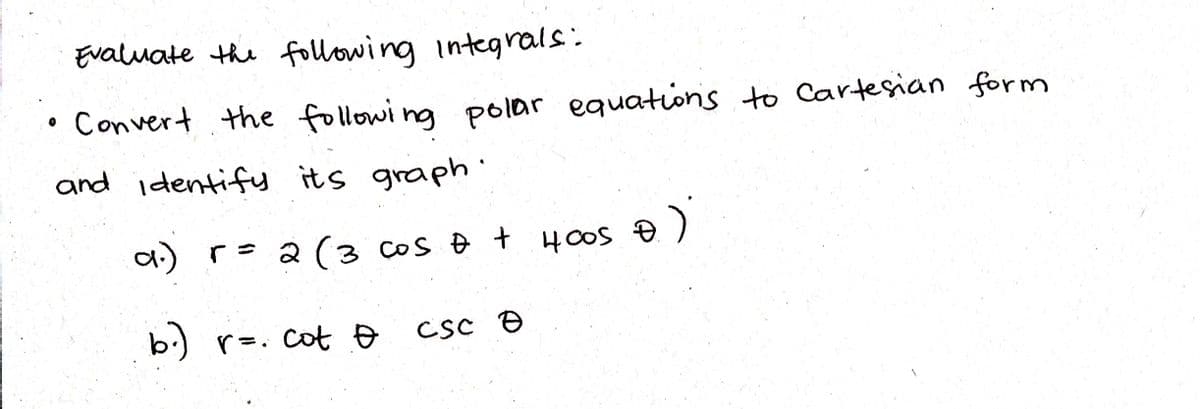 Evaluate the following integrals:
• Convert the following polar equations to Cartesian form
and identify its graph.
a.) r = 2 (3 cos θ + 4 cos θ)
b.) r = . cot θ csc θ